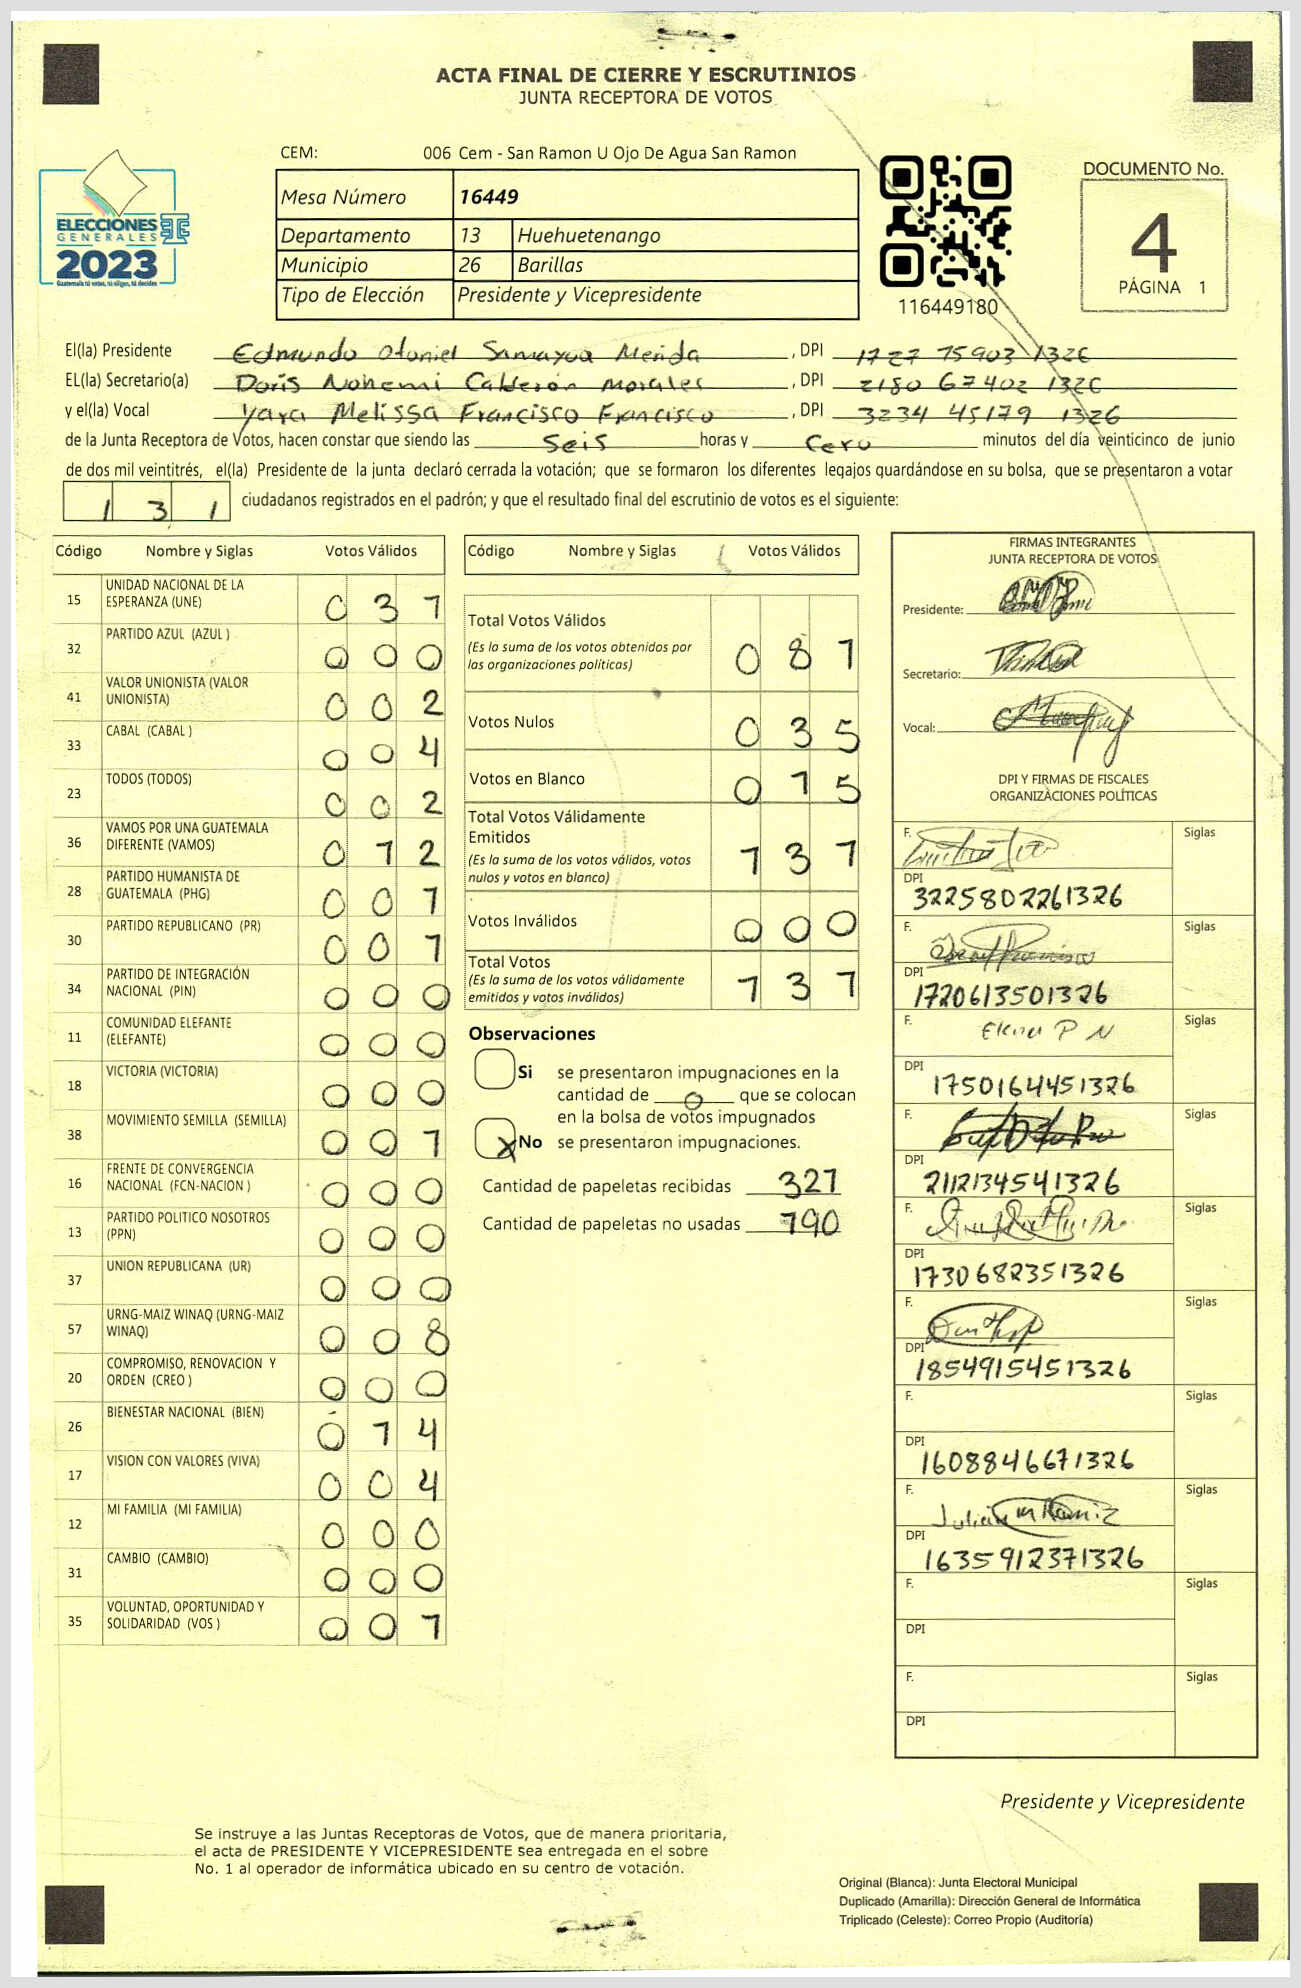 ACTA FINAL DE CIERRE Y ESCRUTINIOS
JUNTA RECEPTORA DE VOTOS
CEM: 006 Cem - San Ramon U Ojo De Agua San Ramon
ELECCIONES
GENERALES
2023
Guatemala tú votas, tú eliges, tú decides
Mesa Número 16449
Departamento 13 Huehuetenango
Municipio 26 Barillas
Tipo de Elección Presidente y Vicepresidente
116449180
DOCUMENTO No.
4
PÁGINA 1
El(la) Presidente Edmundo Otoniel Samayoa Merida , DPI 1727 75903 1326
EL(la) Secretario(a) Doris Nohemi Calderón Morales , DPI 2180 67402 1326
y el(la) Vocal Yara Melissa Francisco Francisco , DPI 3234 45179 1326
de la Junta Receptora de Votos, hacen constar que siendo las Seis horas y Cero minutos del día veinticinco de junio
de dos mil veintitrés, el(la) Presidente de la junta declaró cerrada la votación; que se formaron los diferentes legajos quardándose en su bolsa, que se presentaron a votar
1 3 1 ciudadanos registrados en el padrón; y que el resultado final del escrutinio de votos es el siguiente:
Código Nombre y Siglas Votos Válidos
15 UNIDAD NACIONAL DE LA ESPERANZA (UNE) 0 3 1
32 PARTIDO AZUL (AZUL ) 0 0 0
41 VALOR UNIONISTA (VALOR UNIONISTA) 0 0 2
33 CABAL (CABAL ) 0 0 4
23 TODOS (TODOS) 0 0 2
36 VAMOS POR UNA GUATEMALA DIFERENTE (VAMOS) 0 1 2
28 PARTIDO HUMANISTA DE GUATEMALA (PHG) 0 0 1
30 PARTIDO REPUBLICANO (PR) 0 0 1
34 PARTIDO DE INTEGRACIÓN NACIONAL (PIN) 0 0 0
11 COMUNIDAD ELEFANTE (ELEFANTE) 0 0 0
18 VICTORIA (VICTORIA) 0 0 0
38 MOVIMIENTO SEMILLA (SEMILLA) 0 0 1
16 FRENTE DE CONVERGENCIA NACIONAL (FCN-NACION ) 0 0 0
13 PARTIDO POLITICO NOSOTROS (PPN) 0 0 0
37 UNION REPUBLICANA (UR) 0 0 0
57 URNG-MAIZ WINAQ (URNG-MAIZ WINAQ) 0 0 8
20 COMPROMISO, RENOVACION Y ORDEN (CREO ) 0 0 0
26 BIENESTAR NACIONAL (BIEN) 0 1 4
17 VISION CON VALORES (VIVA) 0 0 4
12 MI FAMILIA (MI FAMILIA) 0 0 0
31 CAMBIO (CAMBIO) 0 0 0
35 VOLUNTAD, OPORTUNIDAD Y SOLIDARIDAD (VOS ) 0 0 1
Código Nombre y Siglas Votos Válidos
Total Votos Válidos 0 8 1
(Es la suma de los votos obtenidos por
las organizaciones políticas)
Votos Nulos 0 3 5
Votos en Blanco 0 1 5
Total Votos Válidamente
Emitidos 1 3 1
(Es la suma de los votos válidos, votos
nulos y votos en blanco)
Votos Inválidos 0 0 0
Total Votos 1 3 1
(Es la suma de los votos válidamente
emitidos y votos inválidos)
Observaciones
Si se presentaron impugnaciones en la
cantidad de 0 que se colocan
en la bolsa de votos impugnados
X No se presentaron impugnaciones.
Cantidad de papeletas recibidas 321
Cantidad de papeletas no usadas 190
FIRMAS INTEGRANTES
JUNTA RECEPTORA DE VOTOS
Presidente:
Secretario:
Vocal:
DPI Y FIRMAS DE FISCALES
ORGANIZACIONES POLÍTICAS
F. Siglas
DPI
3225802261326
F. Siglas
DPI
1720613501326
F. Elena P N Siglas
DPI
1750164451326
F. Siglas
DPI
2112134541326
F. Siglas
DPI
1730682351326
F. Siglas
DPI
1854915451326
F. Siglas
DPI
1608846671326
F. Julián M Ramiz Siglas
DPI
1635912371326
F. Siglas
DPI
F. Siglas
DPI
Presidente y Vicepresidente
Se instruye a las Juntas Receptoras de Votos, que de manera prioritaria,
el acta de PRESIDENTE Y VICEPRESIDENTE sea entregada en el sobre
No. 1 al operador de informática ubicado en su centro de votación.
Original (Blanca): Junta Electoral Municipal
Duplicado (Amarilla): Dirección General de Informática
Triplicado (Celeste): Correo Propio (Auditoría)